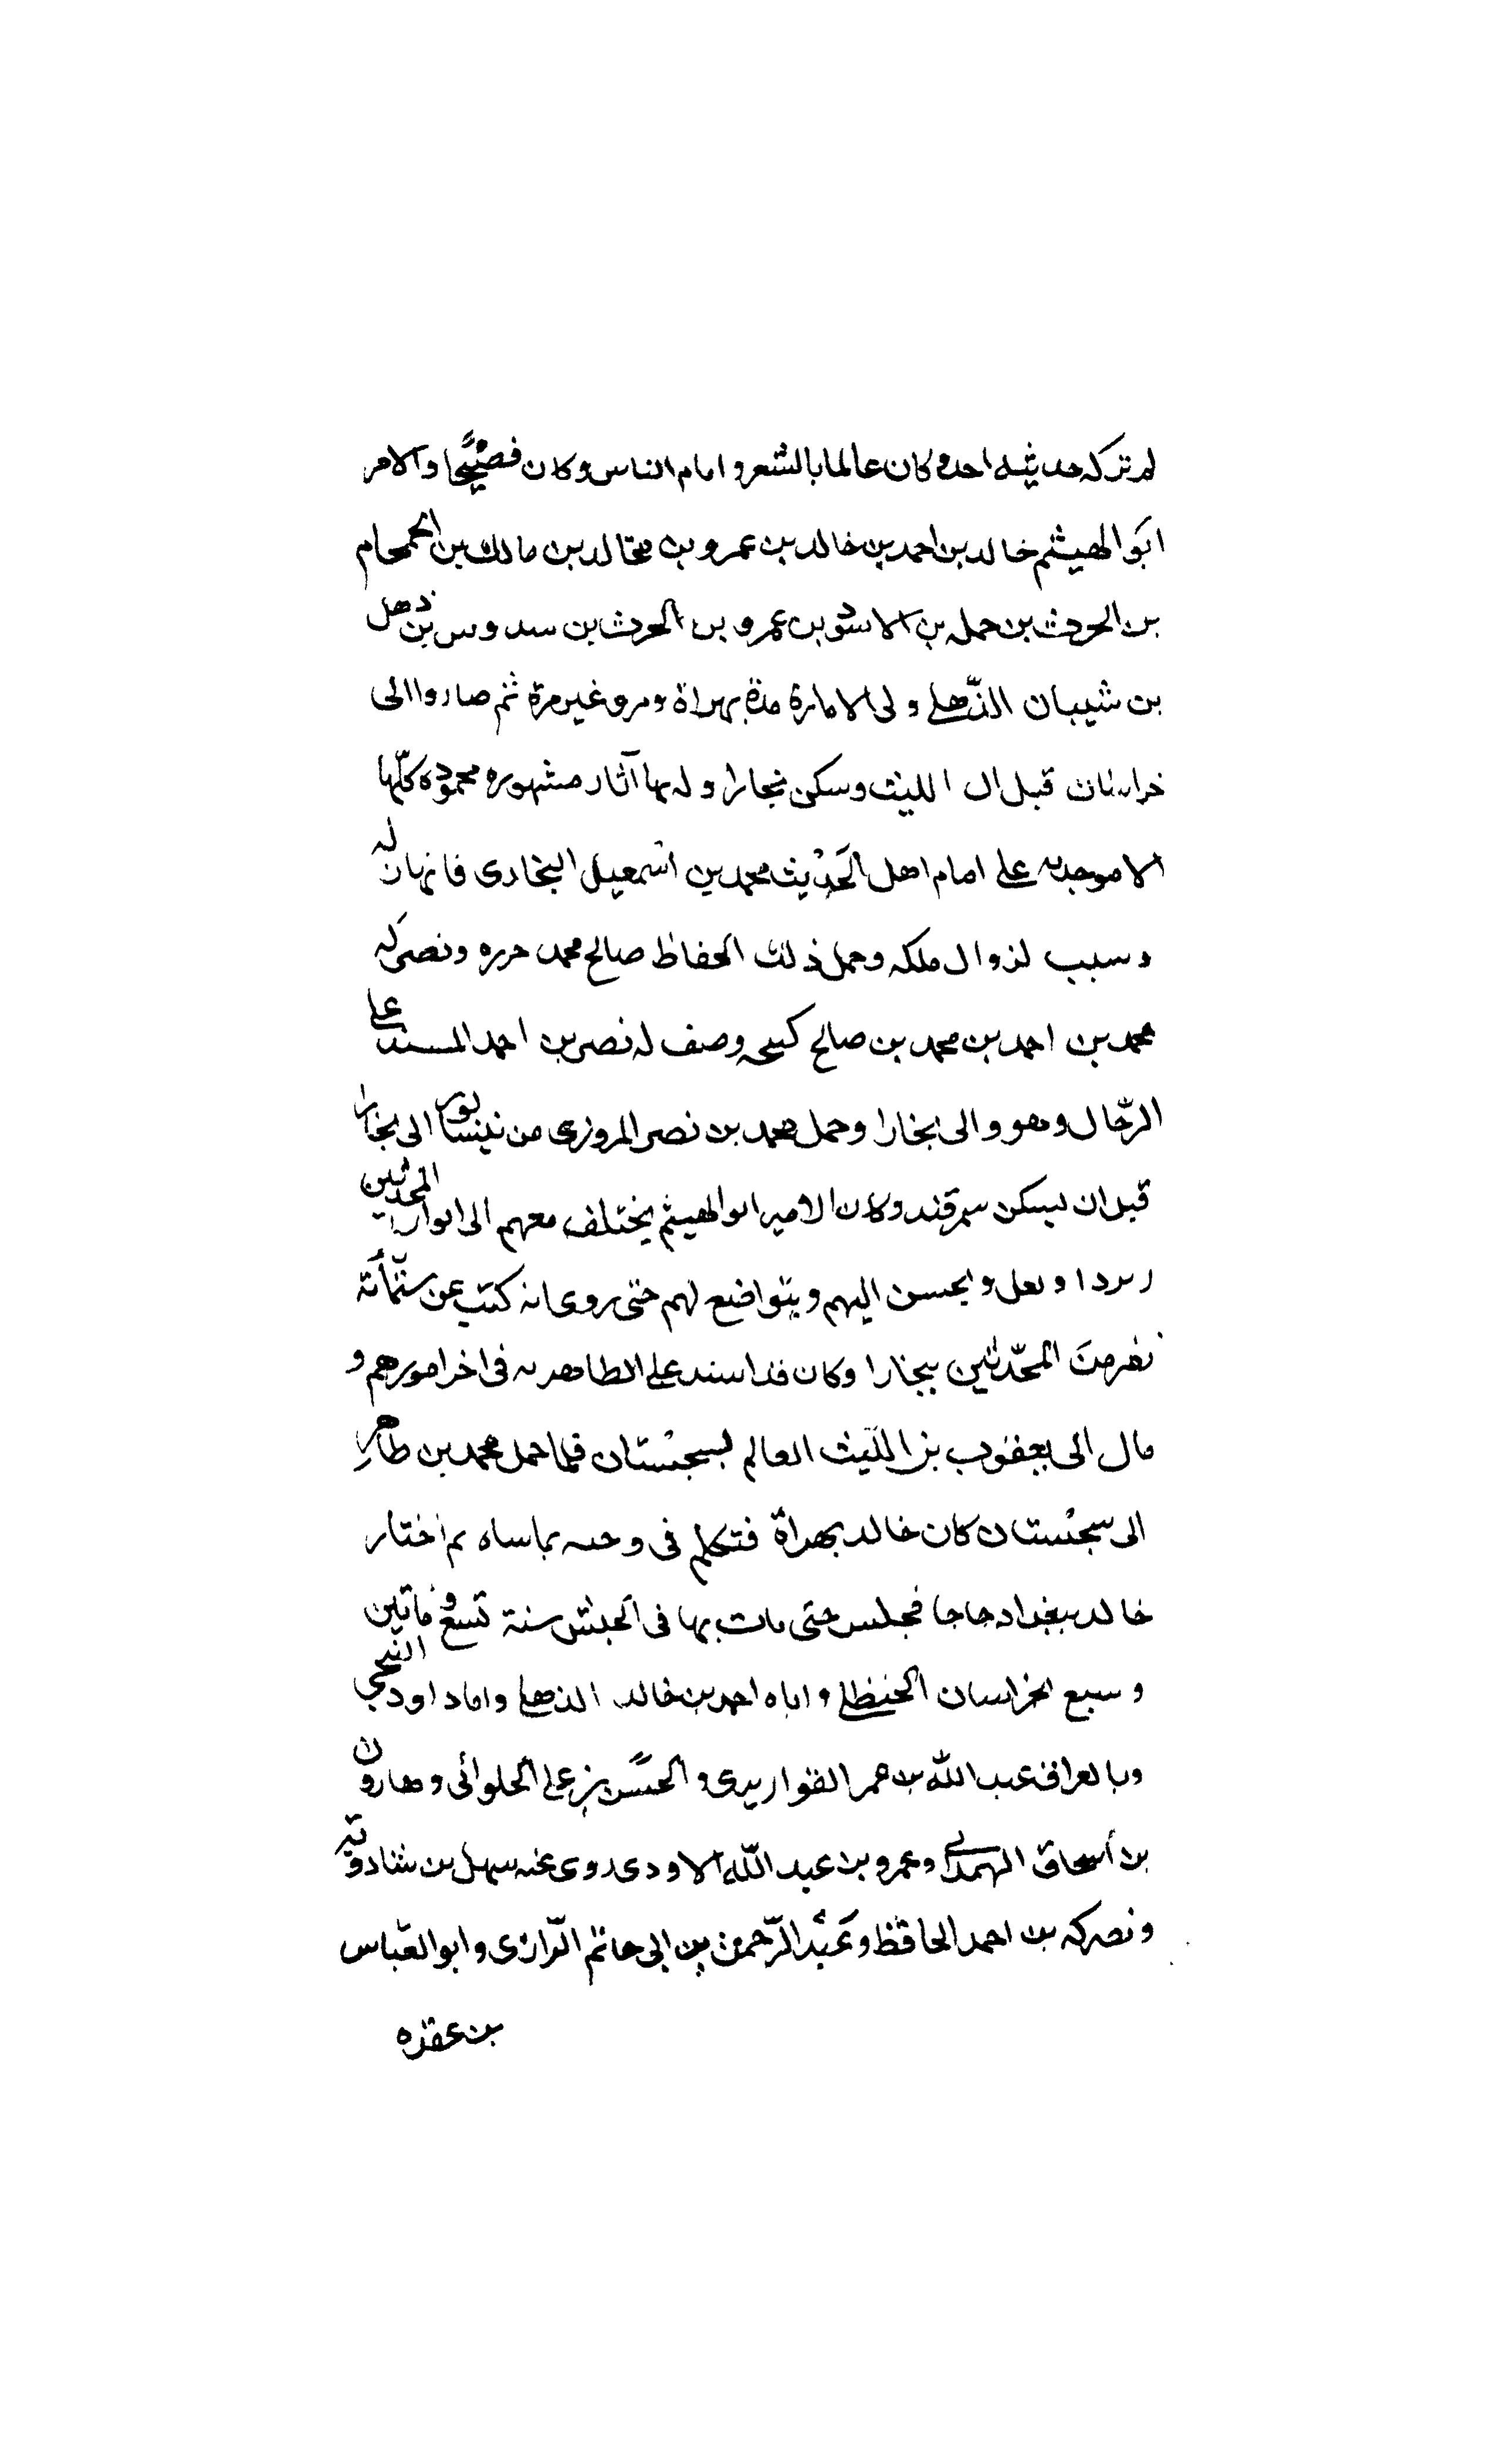 لم يترك حديثه احد وكان عالما بالشعر وامام الناس وكان فصيحا والامر
ابو الهيثم خالد بن احمد بن خالد بن عمرو بن مخالد بن مالك بن الحمحام
بن الحرث بن حمله بن الاسود بن عمرو بن الحرث بن سدوس بن ذهل
بن شيبان الذهلي ولى الامارة مدة بهراة ومرو غير مرة ثم صاروا الى
خراسان قبل ال الليث وسكن بخارا وله بها آثار مشهوره محموده كلّها
الا موجدته على امام اهل الحديث محمد بن اسمعيل البخارى فانها زلة
وسبب لزوال ملكه وحمل ذلك الحفاظ صالح محمد حرره ونصر كه
محمد بن احمد بن محمد بن صالح كيحه وصنف له نصر بن احمد المسند على
الرّجال وهو والى بخارا وحمل محمد بن نصر المروزى من نيسابور الى بخارا
قبل ان يسكن سمرقند وكان الامير ابو الهيثم يختلف معهم الى ابواب المحدثين
بردا ونعل ويحسن اليهم ويتواضع لهم حتى روى انه كتب عن ستمأئة
نفر من المحّدثين ببخارا وكان قد اسند على الطاهريه فى اخر امورهم و
مال الى يعقوب بن الليث العالم بسجستان فلما حمل محمد بن طاهر
الى سجستان كان خالد بهراة فتكلم فى وجهه بما ساه ثم اختار
خالد ببغداد حاجا فجلس حتى مات بها فى الحبس سنة تسع وماتين
وسبع بخراسان الحنظلي واباه احمد بن خالد الذهلي واباد اود السجي
وبالعراق عبد الله بن عمر القواريرى والحسن بن على الحلوائى وهارون
بن اسحاق الهمداني وعمرو بن عبد اللّه الاودى روى عنه سهل بن شادويه
ونصر كه بن احمد الحافظ وعبد الرّحمن بن ابى حاتم الرّازى وابو العبّاس
بن عقده